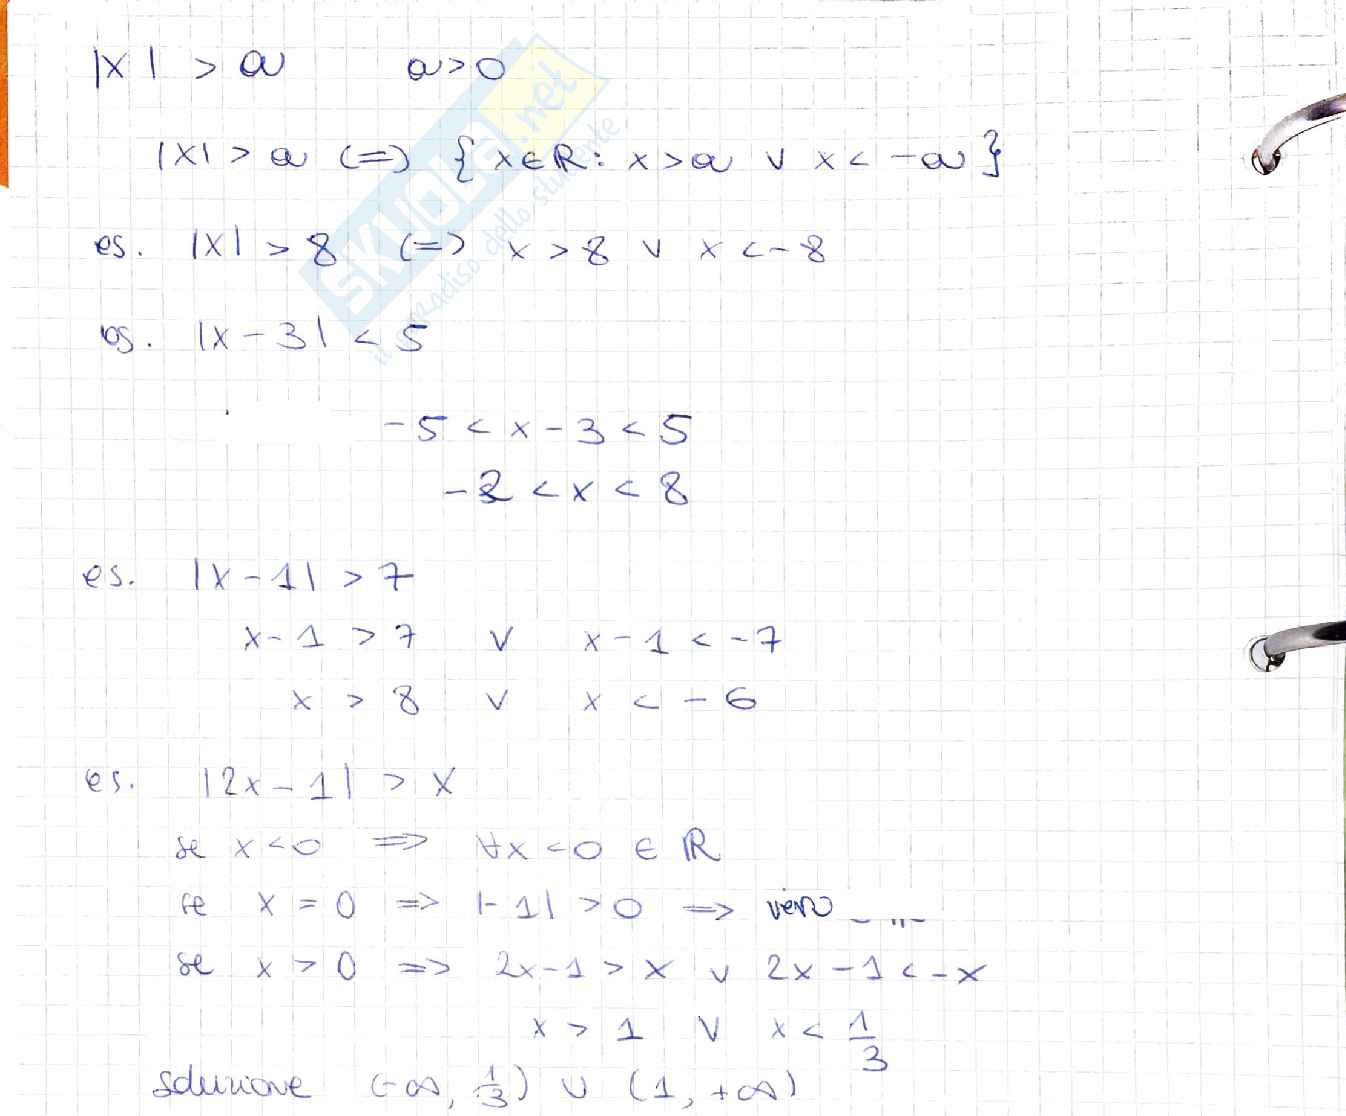 |x| > a a>0
|x| > a (=) { x∈ℝ: x>a ∨ x< -a }
es. |x| > 8 (=> x > 8 ∨ x <-8
es. |x - 3| < 5
-5 < x - 3 < 5
-2 < x < 8
es. |x - 1| > 7
x - 1 > 7 ∨ x - 1 < -7
x > 8 ∨ x < - 6
es. |2x - 1| > x
se x<0 => ∀x <0 ∈ ℝ
se x = 0 => |-1| > 0 => vero
se x > 0 => 2x-1 > x ∨ 2x -1 < -x
x > 1 ∨ x < 1/3
soluzione (-∞, 1/3) ∪ (1, +∞)
SKUOLA.net
il paradiso dello studente